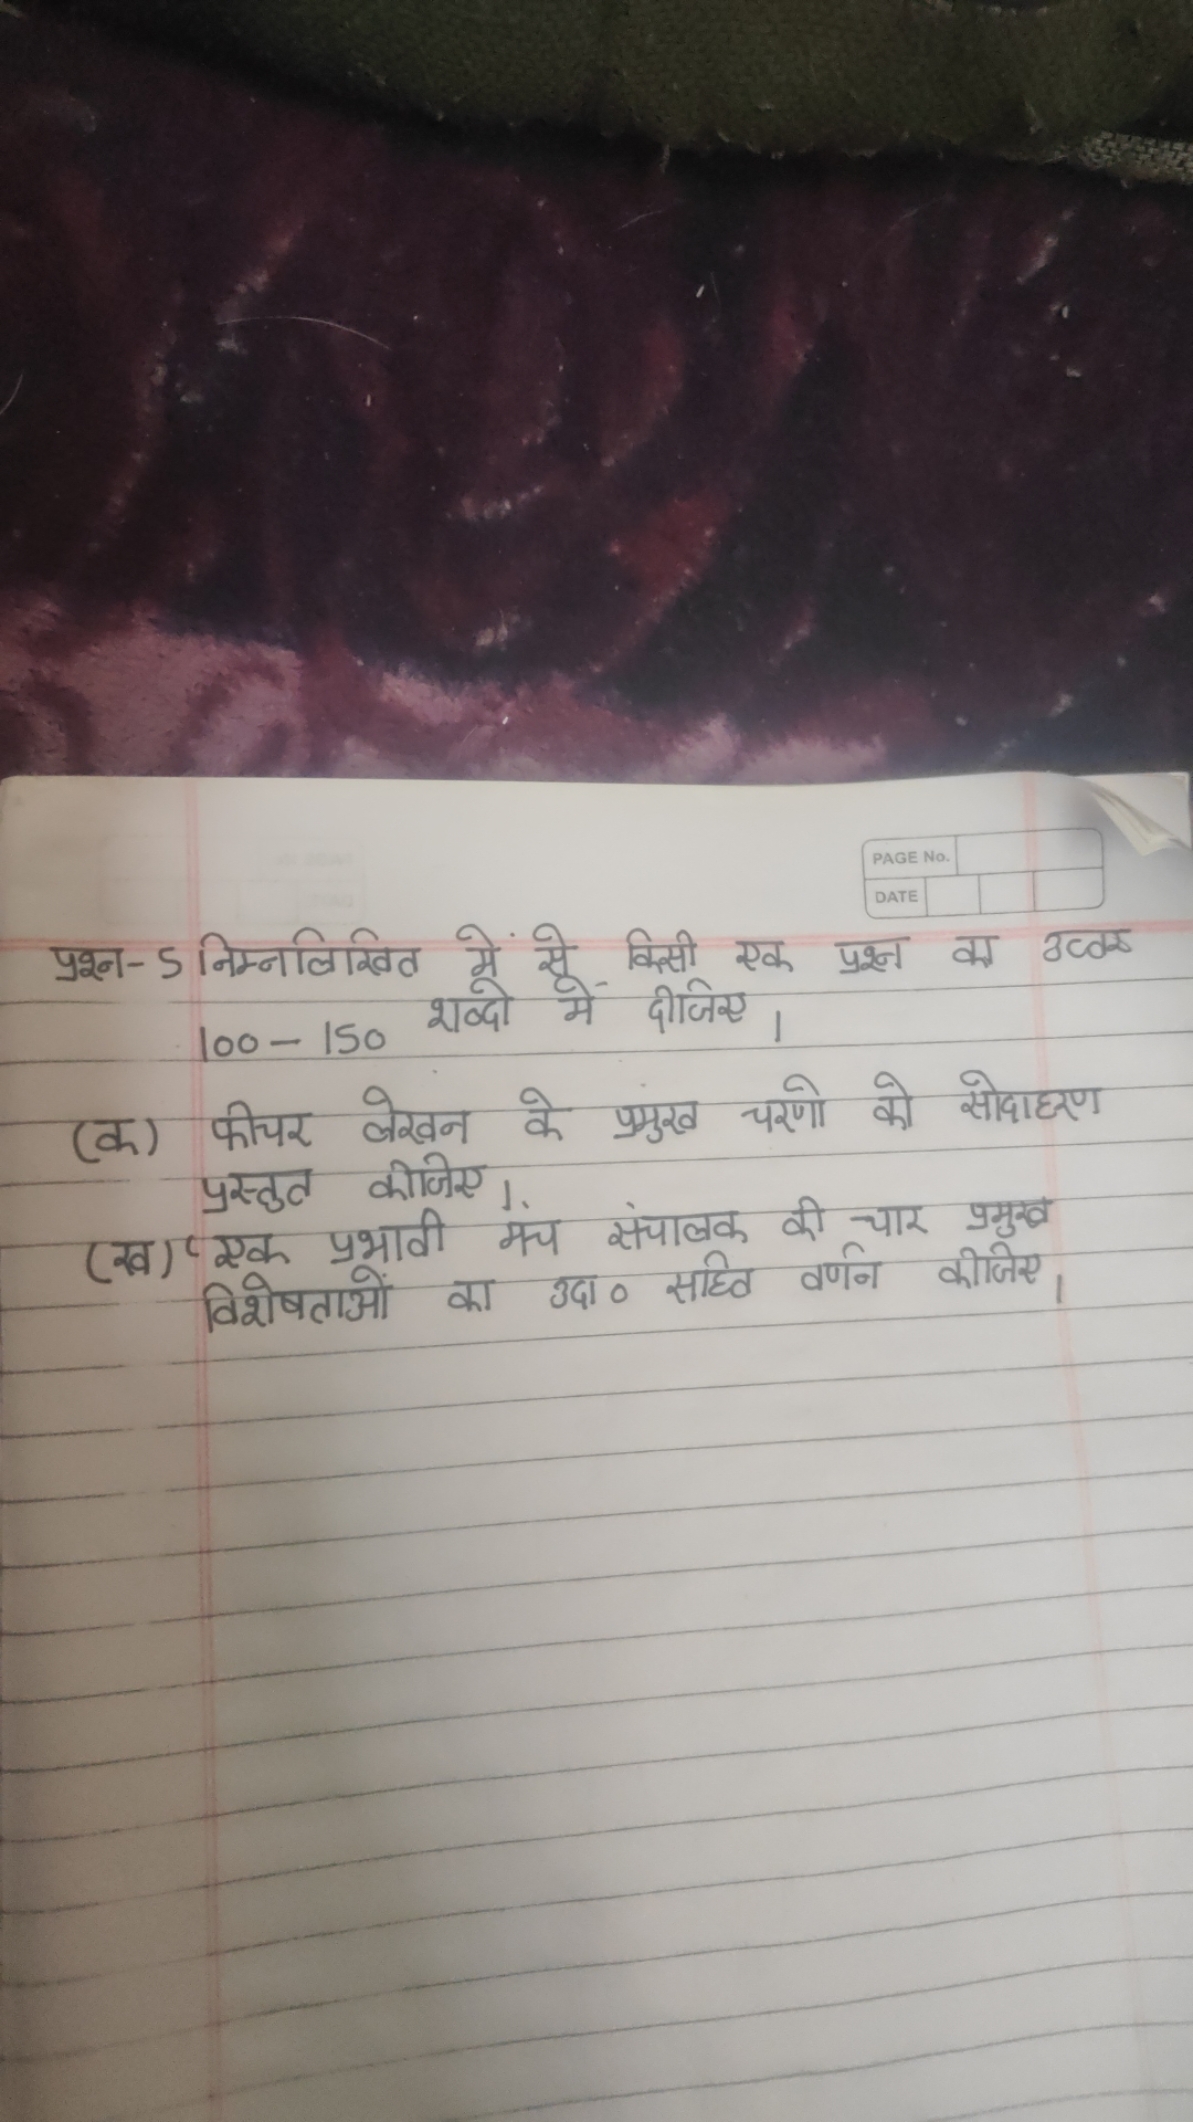 PAGE No.
DATE
प्रश्न-5 निम्नलिखित में से किसी एक प्रश्न का उत्तर
100-150 शब्दो में दीजिए।
(क) फीचर लेखन के प्रमुख चरणो को सोदाहरण
प्रस्तुत कीजिए।
(ख) एक प्रभावी मंच संचालक की चार प्रमुख
विशेषताओं का उदा० सहित वर्णन कीजिए।